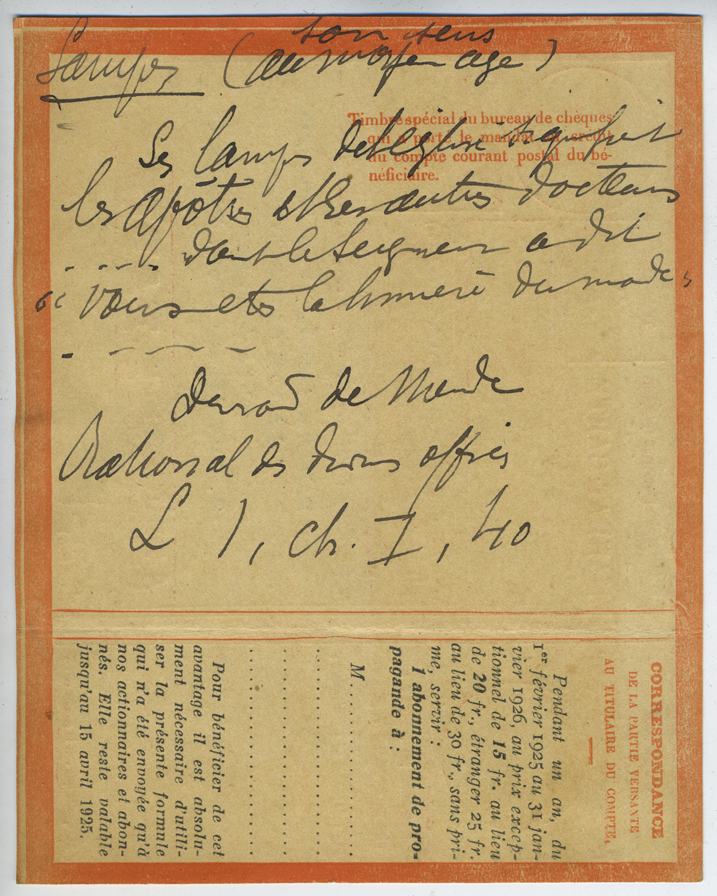 Lampes (son sens
au moyen age)
Timbre spécial du bureau de chèques
qui a porté le mandat au crédit
du compte courant postal du bé-
néficiaire.
Les lampes de l'église signifient
les apôtres et les autres docteurs
..... dont le Seigneur a dit
" Vous etes la lumière du monde "
Durand de Mende
Rational des divins offices
L 1, ch. I, 40
CORRESPONDANCE
DE LA PARTIE VERSANTE
AU TITULAIRE DU COMPTE,
Pendant un an, du
1er février 1925 au 31 jan-
vier 1926, au prix excep-
tionnel de 15 fr. au lieu
de 20 fr., étranger 25 fr.
au lieu de 30 fr., sans pri-
me, servir :
1 abonnement de pro-
pagande à :
M....................
Pour bénéficier de cet
avantage il est absolu-
ment nécessaire d'utili-
ser la présente formule
qui n'a été envoyée qu'à
nos actionnaires et abon-
nés. Elle reste valable
jusqu'au 15 avril 1925.